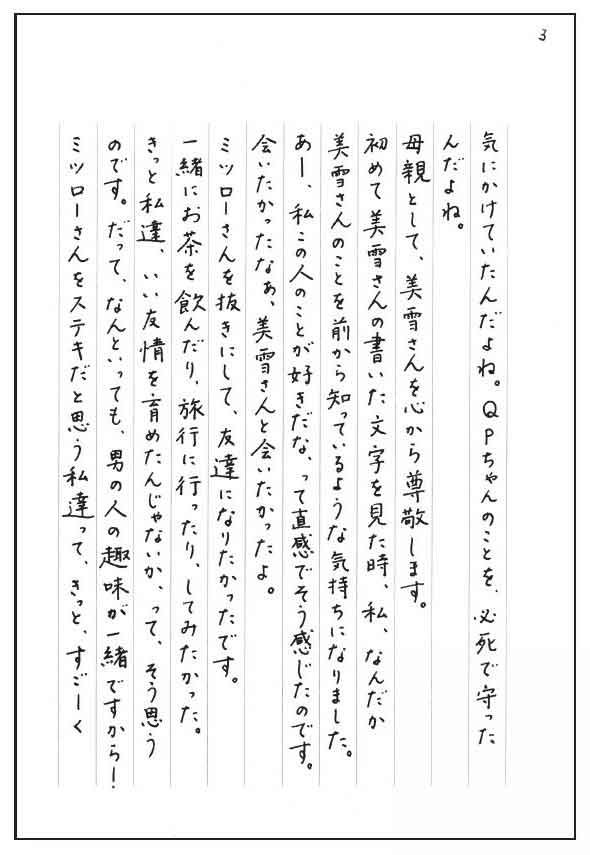 3
気にかけていたんだよね。QPちゃんのことを、必死で守った
んだよね。
母親として、美雪さんを心から尊敬します。
初めて美雪さんの書いた文字を見た時、私、なんだか
美雪さんのことを前から知っているような気持ちになりました。
あー、私この人のことが好きだな、って直感でそう感じたのです。
会いたかったなぁ、美雪さんと会いたかったよ。
ミツローさんを抜きにして、友達になりたかったです。
一緒にお茶を飲んだり、旅行に行ったり、してみたかった。
きっと私達、いい友情を育めたんじゃないか、って、そう思う
のです。だって、なんといっても、男の人の趣味が一緒ですから！
ミツローさんをステキだと思う私達って、きっと、すごーく